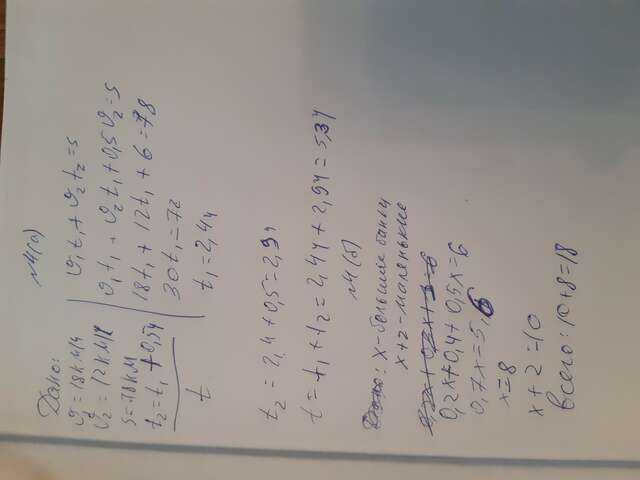 №4(а)
Дано:
υ₁=18км/ч
υ₂=12км/ч
s=78км
t₂=t₁+0,5ч
t
υ₁t₁+υ₂t₂=s
υ₁t₁+υ₂t₁+0,5υ₂=s
18t₁+12t₁+6=78
30t₁=72
t₁=2,4ч
t₂=2,4+0,5=2,9ч
t=t₁+t₂=2,4ч+2,9ч=5,3ч
№4(б)
x-большие банки
x+2-маленькие
0,2x+0,4+0,5x=6
0,7x=5,6
x=8
x+2=10
Всего:10+8=18